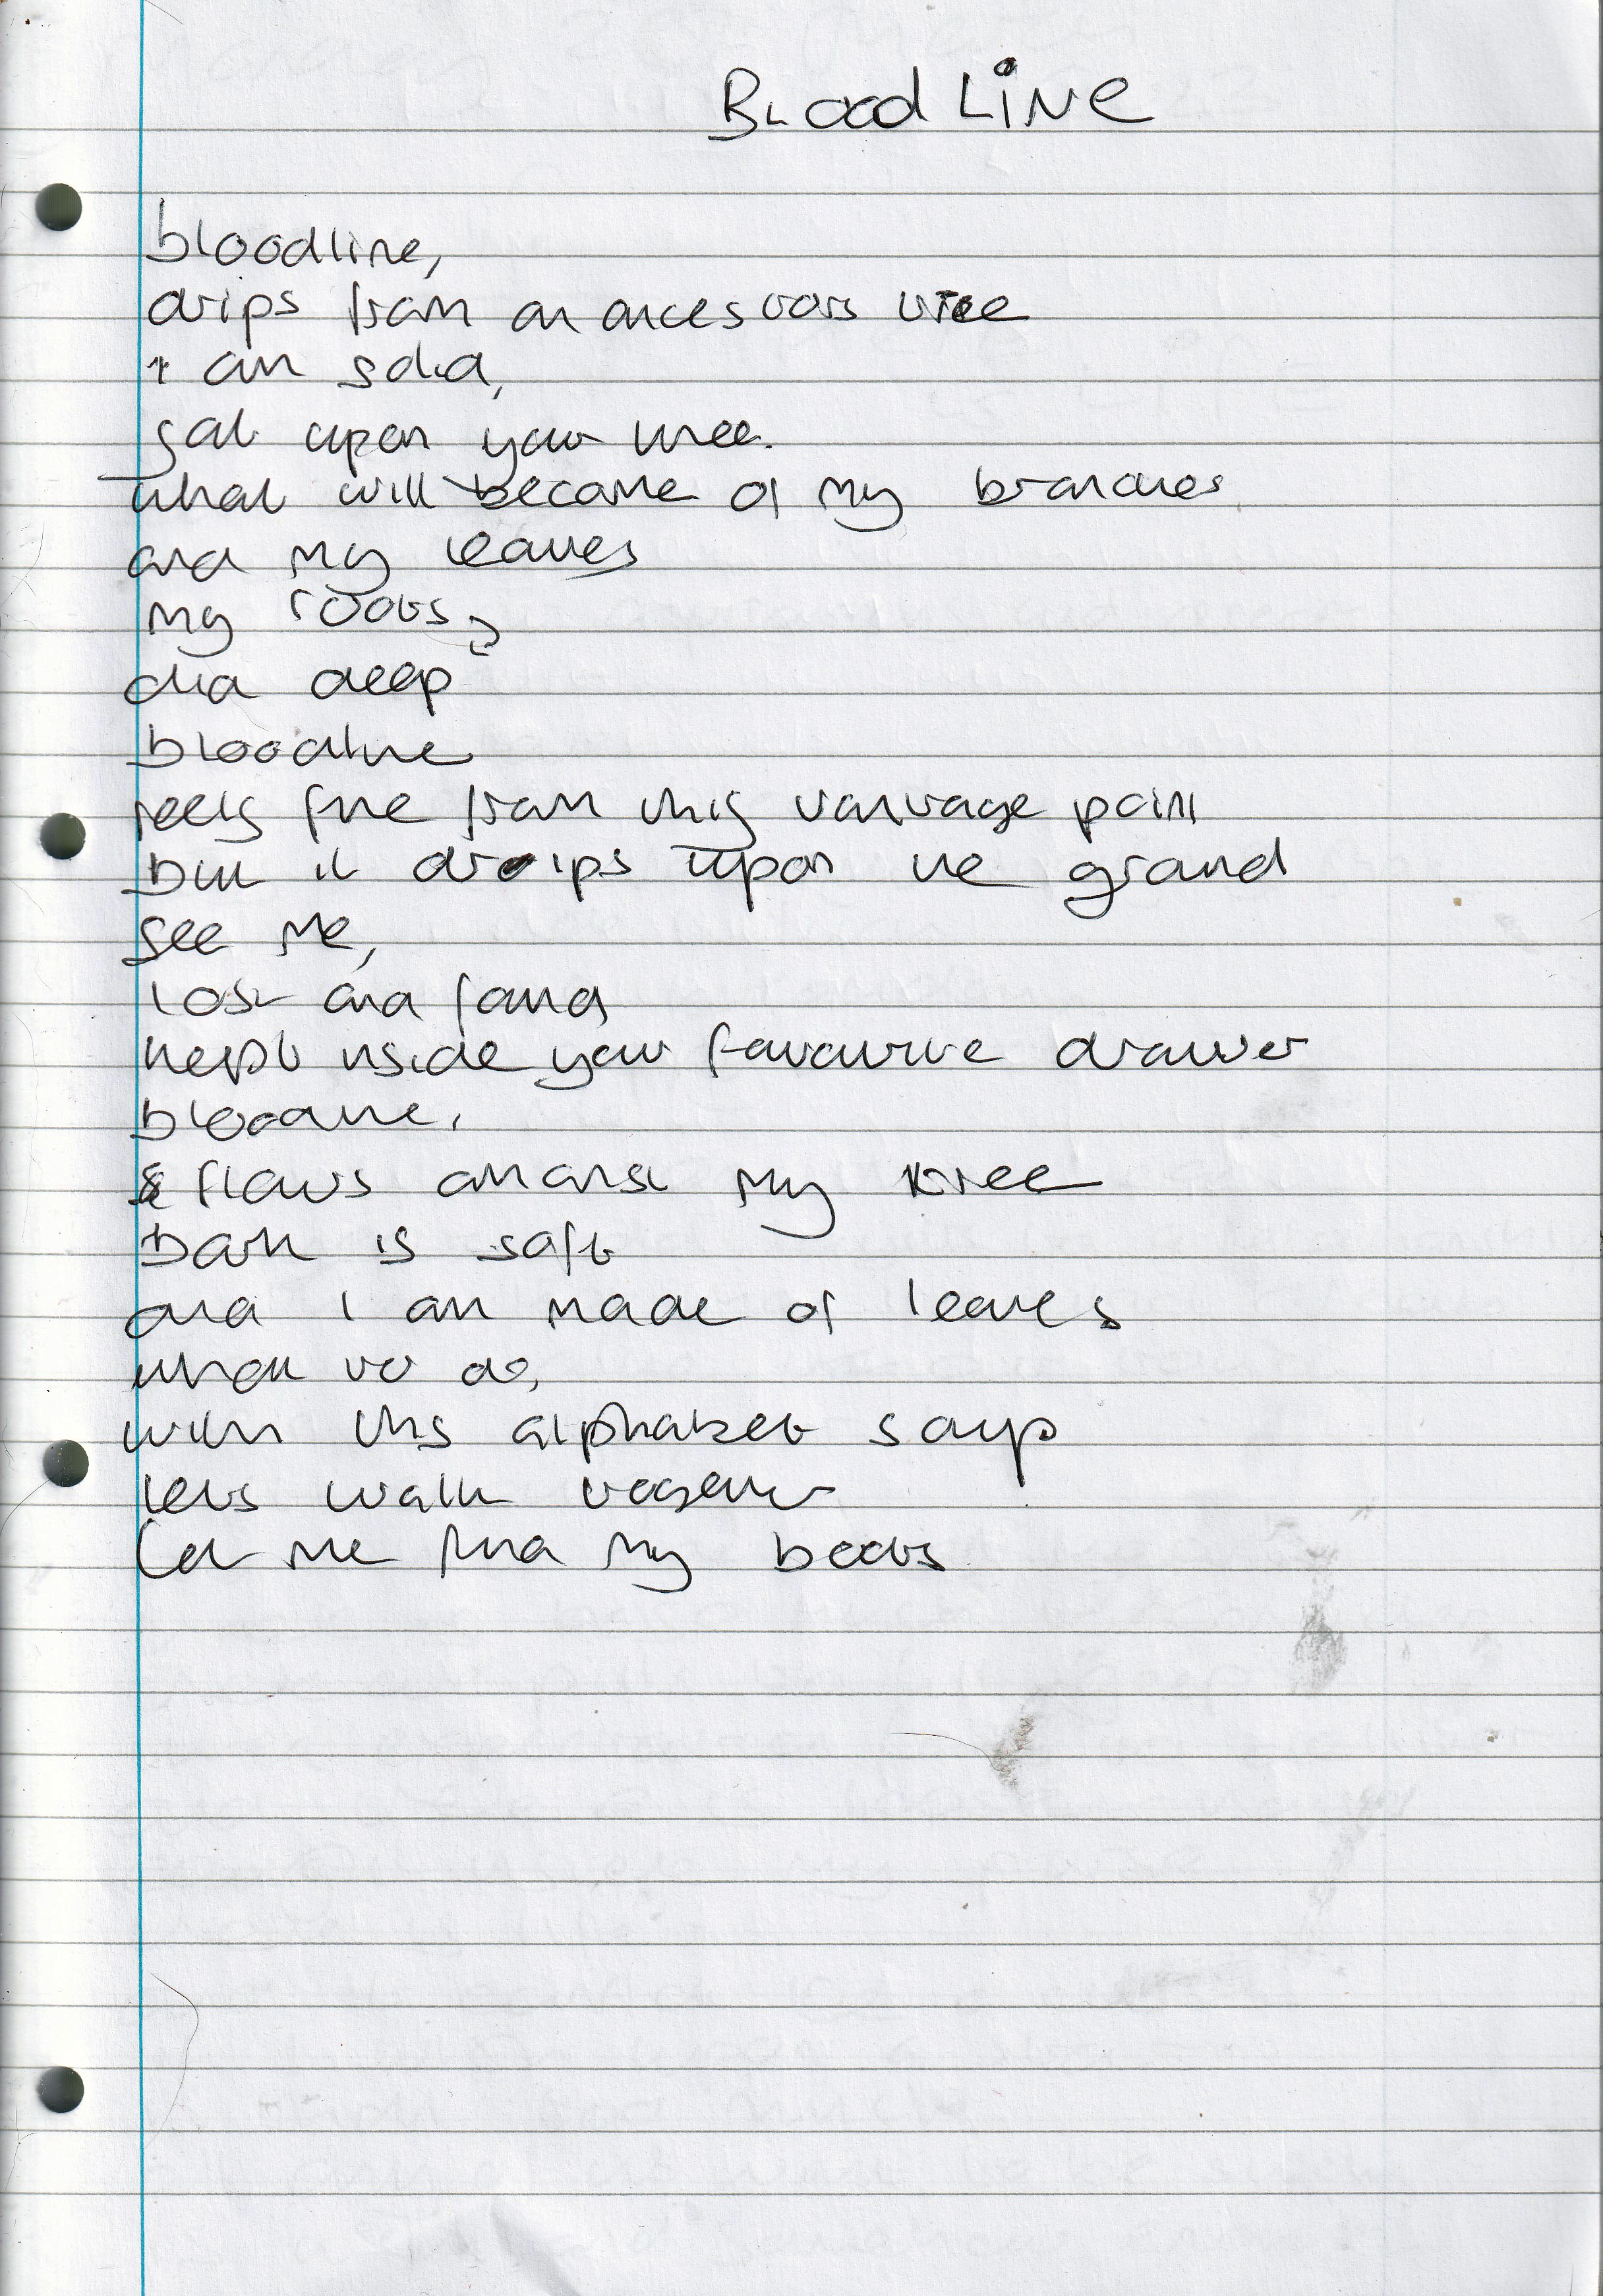 BLoodLiNe
bloodline,
drips from an ancestors tree
I am solid,
sat upon your knee.
what will become of my branches
and my leaves
my roots,
did deep
bloodline
feels fine from this vantage point
but it drips upon the ground
see me,
lost and found
kept inside your favourite drawer
bloodline,
& flows amongst my tree
bark is soft
and I am made of leaves
what to do,
with this alphabet soup
lets walk together
let me find my boots